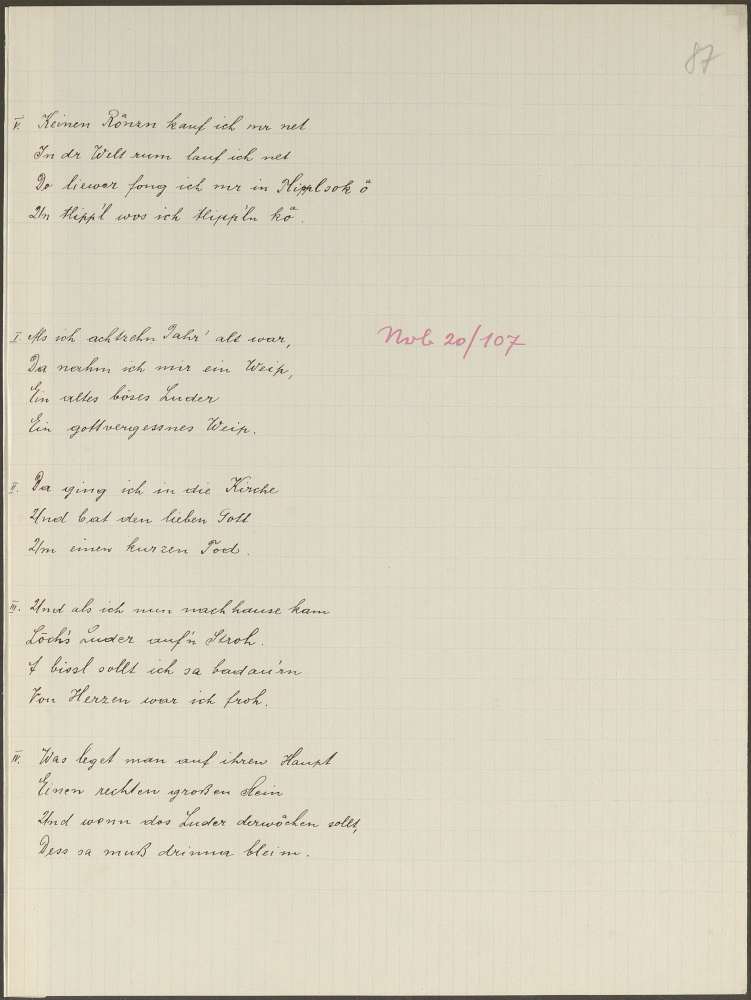 87
V. Keinen Rönzn kauf ich mr net
In dr Welt rum lauf ich net
Do liewer fong ich mr in Hipplsok ö
Un Hipp'l wos ich Hipp'ln kö.
I. Als ich achtzehn Jahr' alt war, Nob 20/107
Da nahm ich mir ein Weip,
Ein altes böses Luder
Ein gottvergessnes Weip.
II. Da ging ich in die Kirche
Und bat den lieben Gott
Um einen kurzen Tod.
III. Und als ich nun nachhause kam
Löch's Luder auf'n Stroh.
A bissl sollt ich sa badau'rn
Von Herzen war ich froh.
IV. Was leget man auf ihren Haupt
Einen rechten großen Stein
Und wenn dos Luder derwöchen sollt,
Dess sa muß drinna bleim.